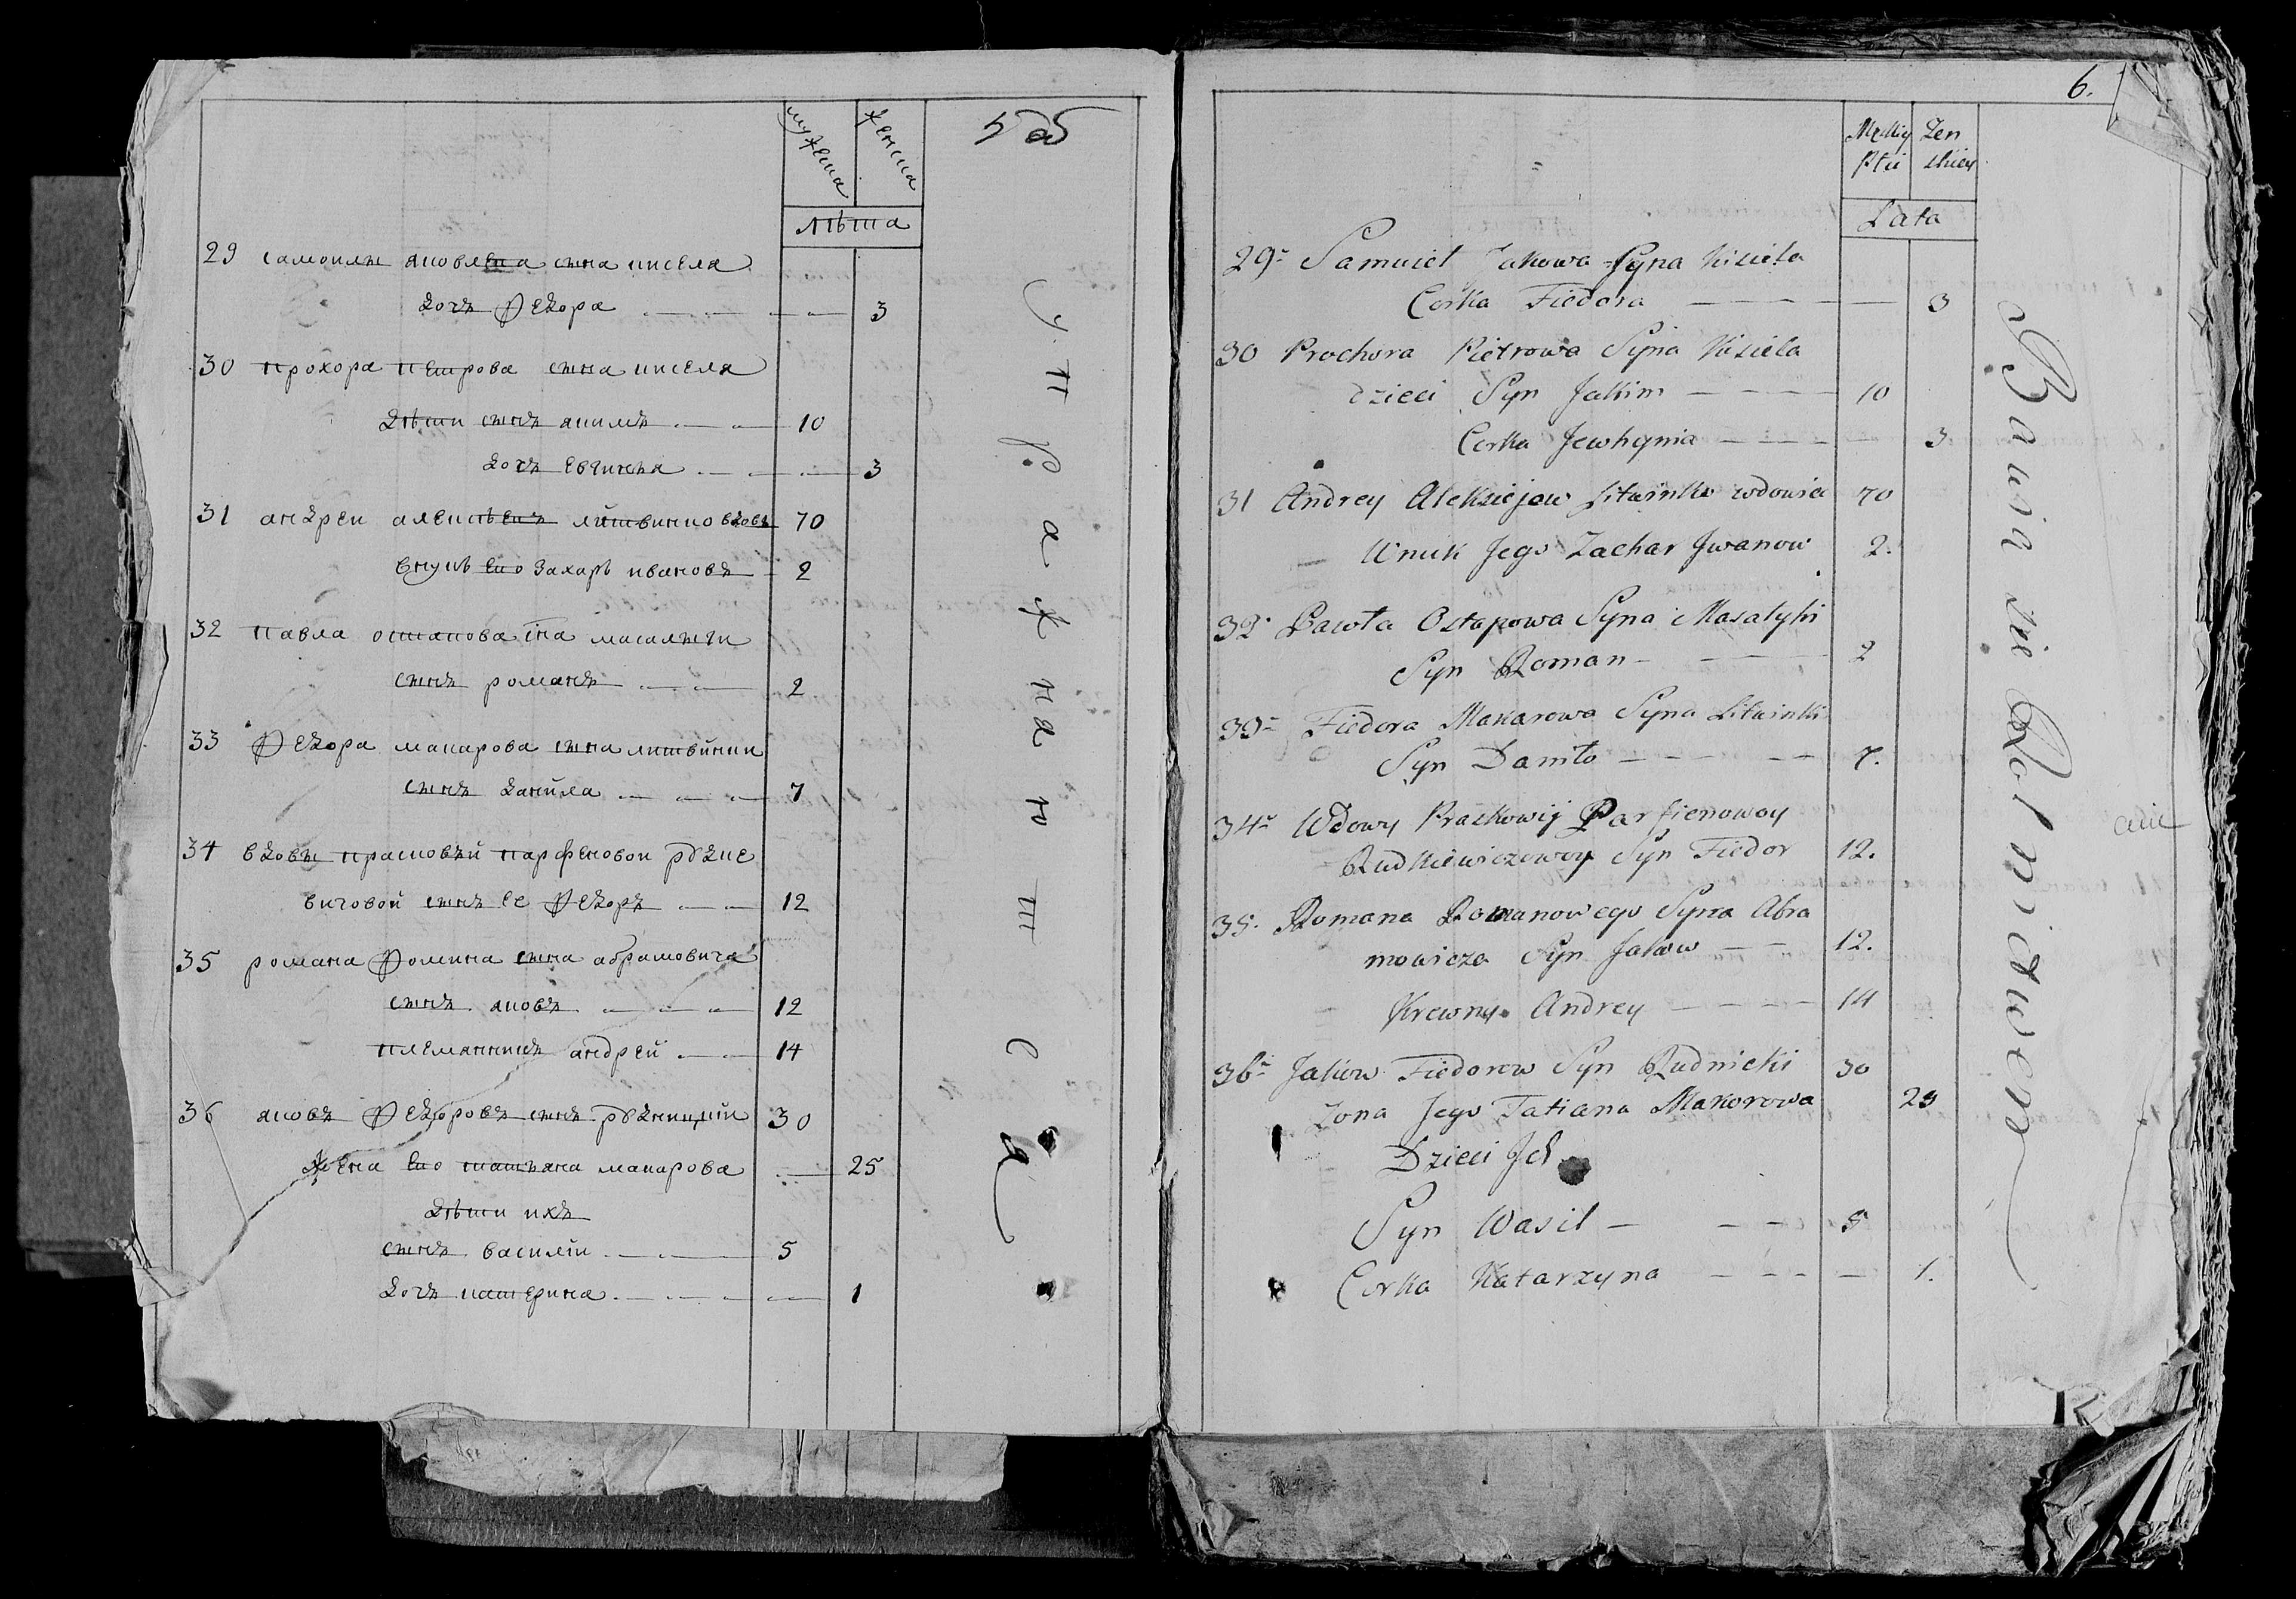 мужеска
женска
лѣта
29 самоилы яковлева сына киселя
дочь Федора 3
30 прохора петрова сына киселя
дѣти сынъ якимъ 10
дочь евгинья 3
31 андреи алексѣевъ литвинко вдовъ 70
внукъ ево захаръ ивановъ 2
32 павла остапова сна масалыги
сынъ романъ 2
33 Федора макарова сына литвинки
сынъ данила 7
34 вдовы прасковьи парфеновои рудке
вичовой сынъ ее Федоръ 12
35 романа Фомина сына абрамовича
сынъ яковъ 12
племянникъ андрей 14
36 яковъ Федоровъ сынъ рудницкіи 30
жена ево татьяна макарова 25
дѣти ихъ
сынъ василіи 5
дочь катерина 1
упражнаютса
6.
Męskiy Żen
płci skiey
Lata
29 Samuiel Jakowa Syna Kisiela
Corka Fiedora 3
30 Prochora Pietrowa Syna Kisiela
dzieci Syn Jakim 10
Corka Jewhynia 3
31 Andrey Aleksiejew Litwinko wdowiec 70
Wnuk Jego Zachar Jwanow 2.
32 Pawła Ostapowa Syna Masałyki
Syn Roman 2
33 Fiedora Makarowa Syna Litwinki
Syn Daniło 7.
34 Wdowy Praskowij Parfienowoy
Rudkiewiczowoy Syn Fiedor 12.
35. Romana Romanowego Syna Abra
mowicza Syn Jakow 12.
Krewny Andrey 14
36 Jakow Fiedorow Syn Rudnicki 30
Zona Jego Tatiana Makorowa 25
Dzieci Jch
Syn Wasil 5
Corka Katarzyna 1.
Bawią się Rolnictwem